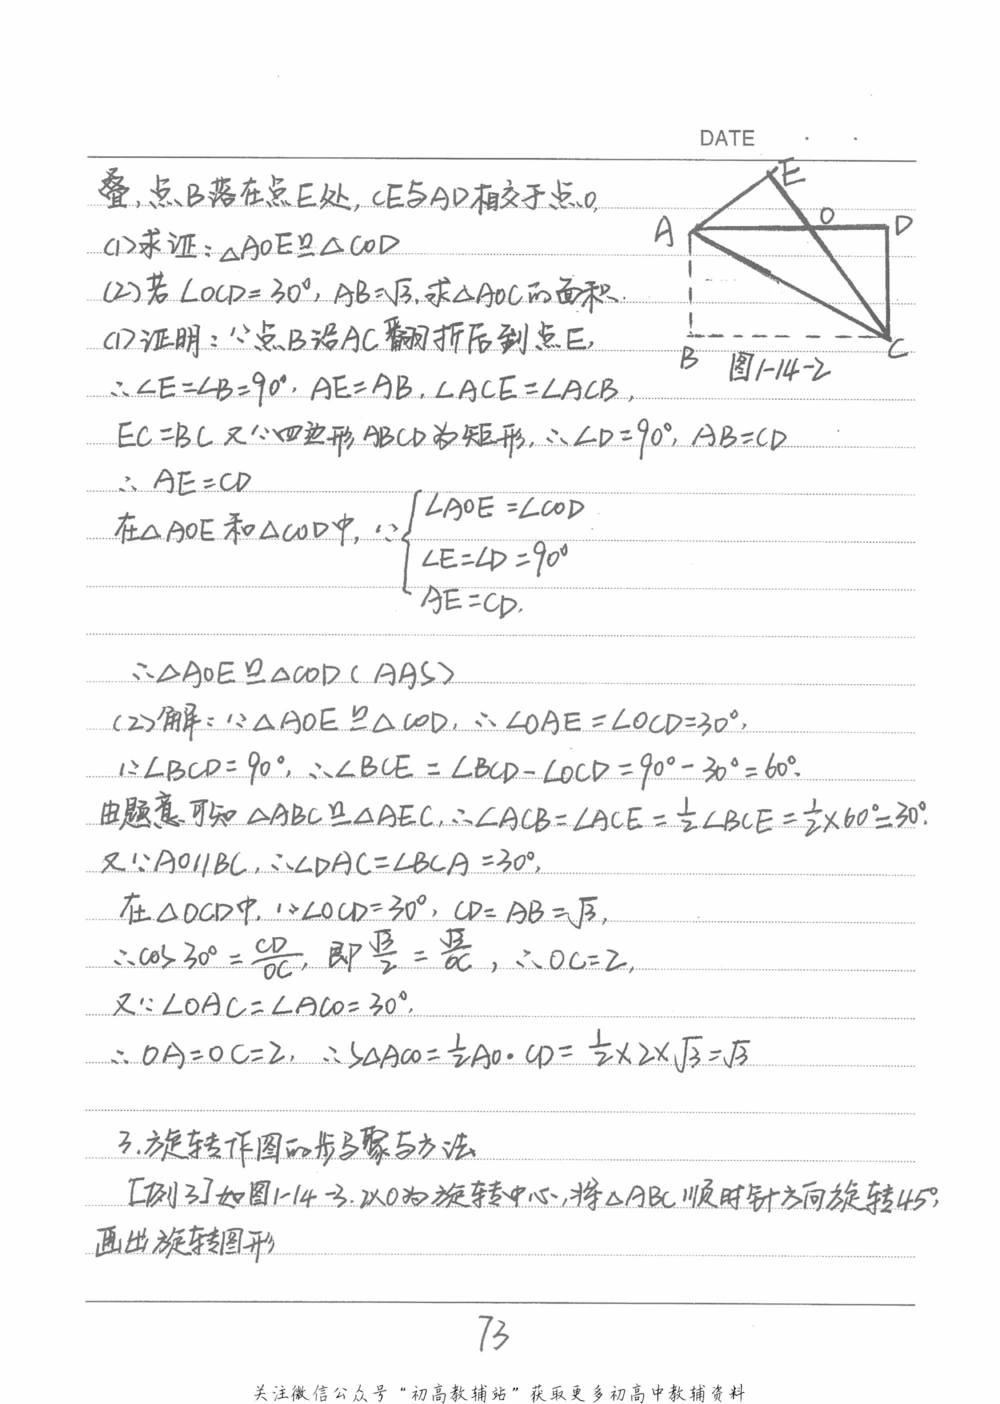 DATE · ·
叠,点B落在点E处,CE与AD相交于点O,
(1)求证:△AOE≌△COD
(2)若∠OCD=30°,AB=√3,求△AOC的面积.
E
A
O
D
B
C
图1-14-2
(1)证明:∵点B沿AC翻折后到点E,
∴∠E=∠B=90°,AE=AB,∠ACE=∠ACB,
EC=BC 又∵四边形ABCD为矩形,∴∠D=90°,AB=CD
∴AE=CD
在△AOE和△COD中,∵{∠AOE=∠COD
∠E=∠D=90°
AE=CD.
∴△AOE≌△COD(AAS)
(2)解:∵△AOE≌△COD,∴∠OAE=∠OCD=30°,
∵∠BCD=90°,∴∠BCE=∠BCD-∠OCD=90°-30°=60°.
由题意可知△ABC≌△AEC,∴∠ACB=∠ACE=1/2∠BCE=1/2×60°=30°.
又∵AO//BC,∴∠DAC=∠BCA=30°,
在△OCD中,∵∠OCD=30°,CD=AB=√3,
∴cos30°=CD/OC,即√3/2=√3/OC,∴OC=2,
又∵∠OAC=∠ACO=30°,
∴OA=OC=2,∴S△ACO=1/2AO·CD=1/2×2×√3=√3
3.旋转作图的步骤与方法
[例3]如图1-14-3.以O为旋转中心,将△ABC顺时针方向旋转45°,
画出旋转图形
73
关注微信公众号“初高教辅站”获取更多初高中教辅资料